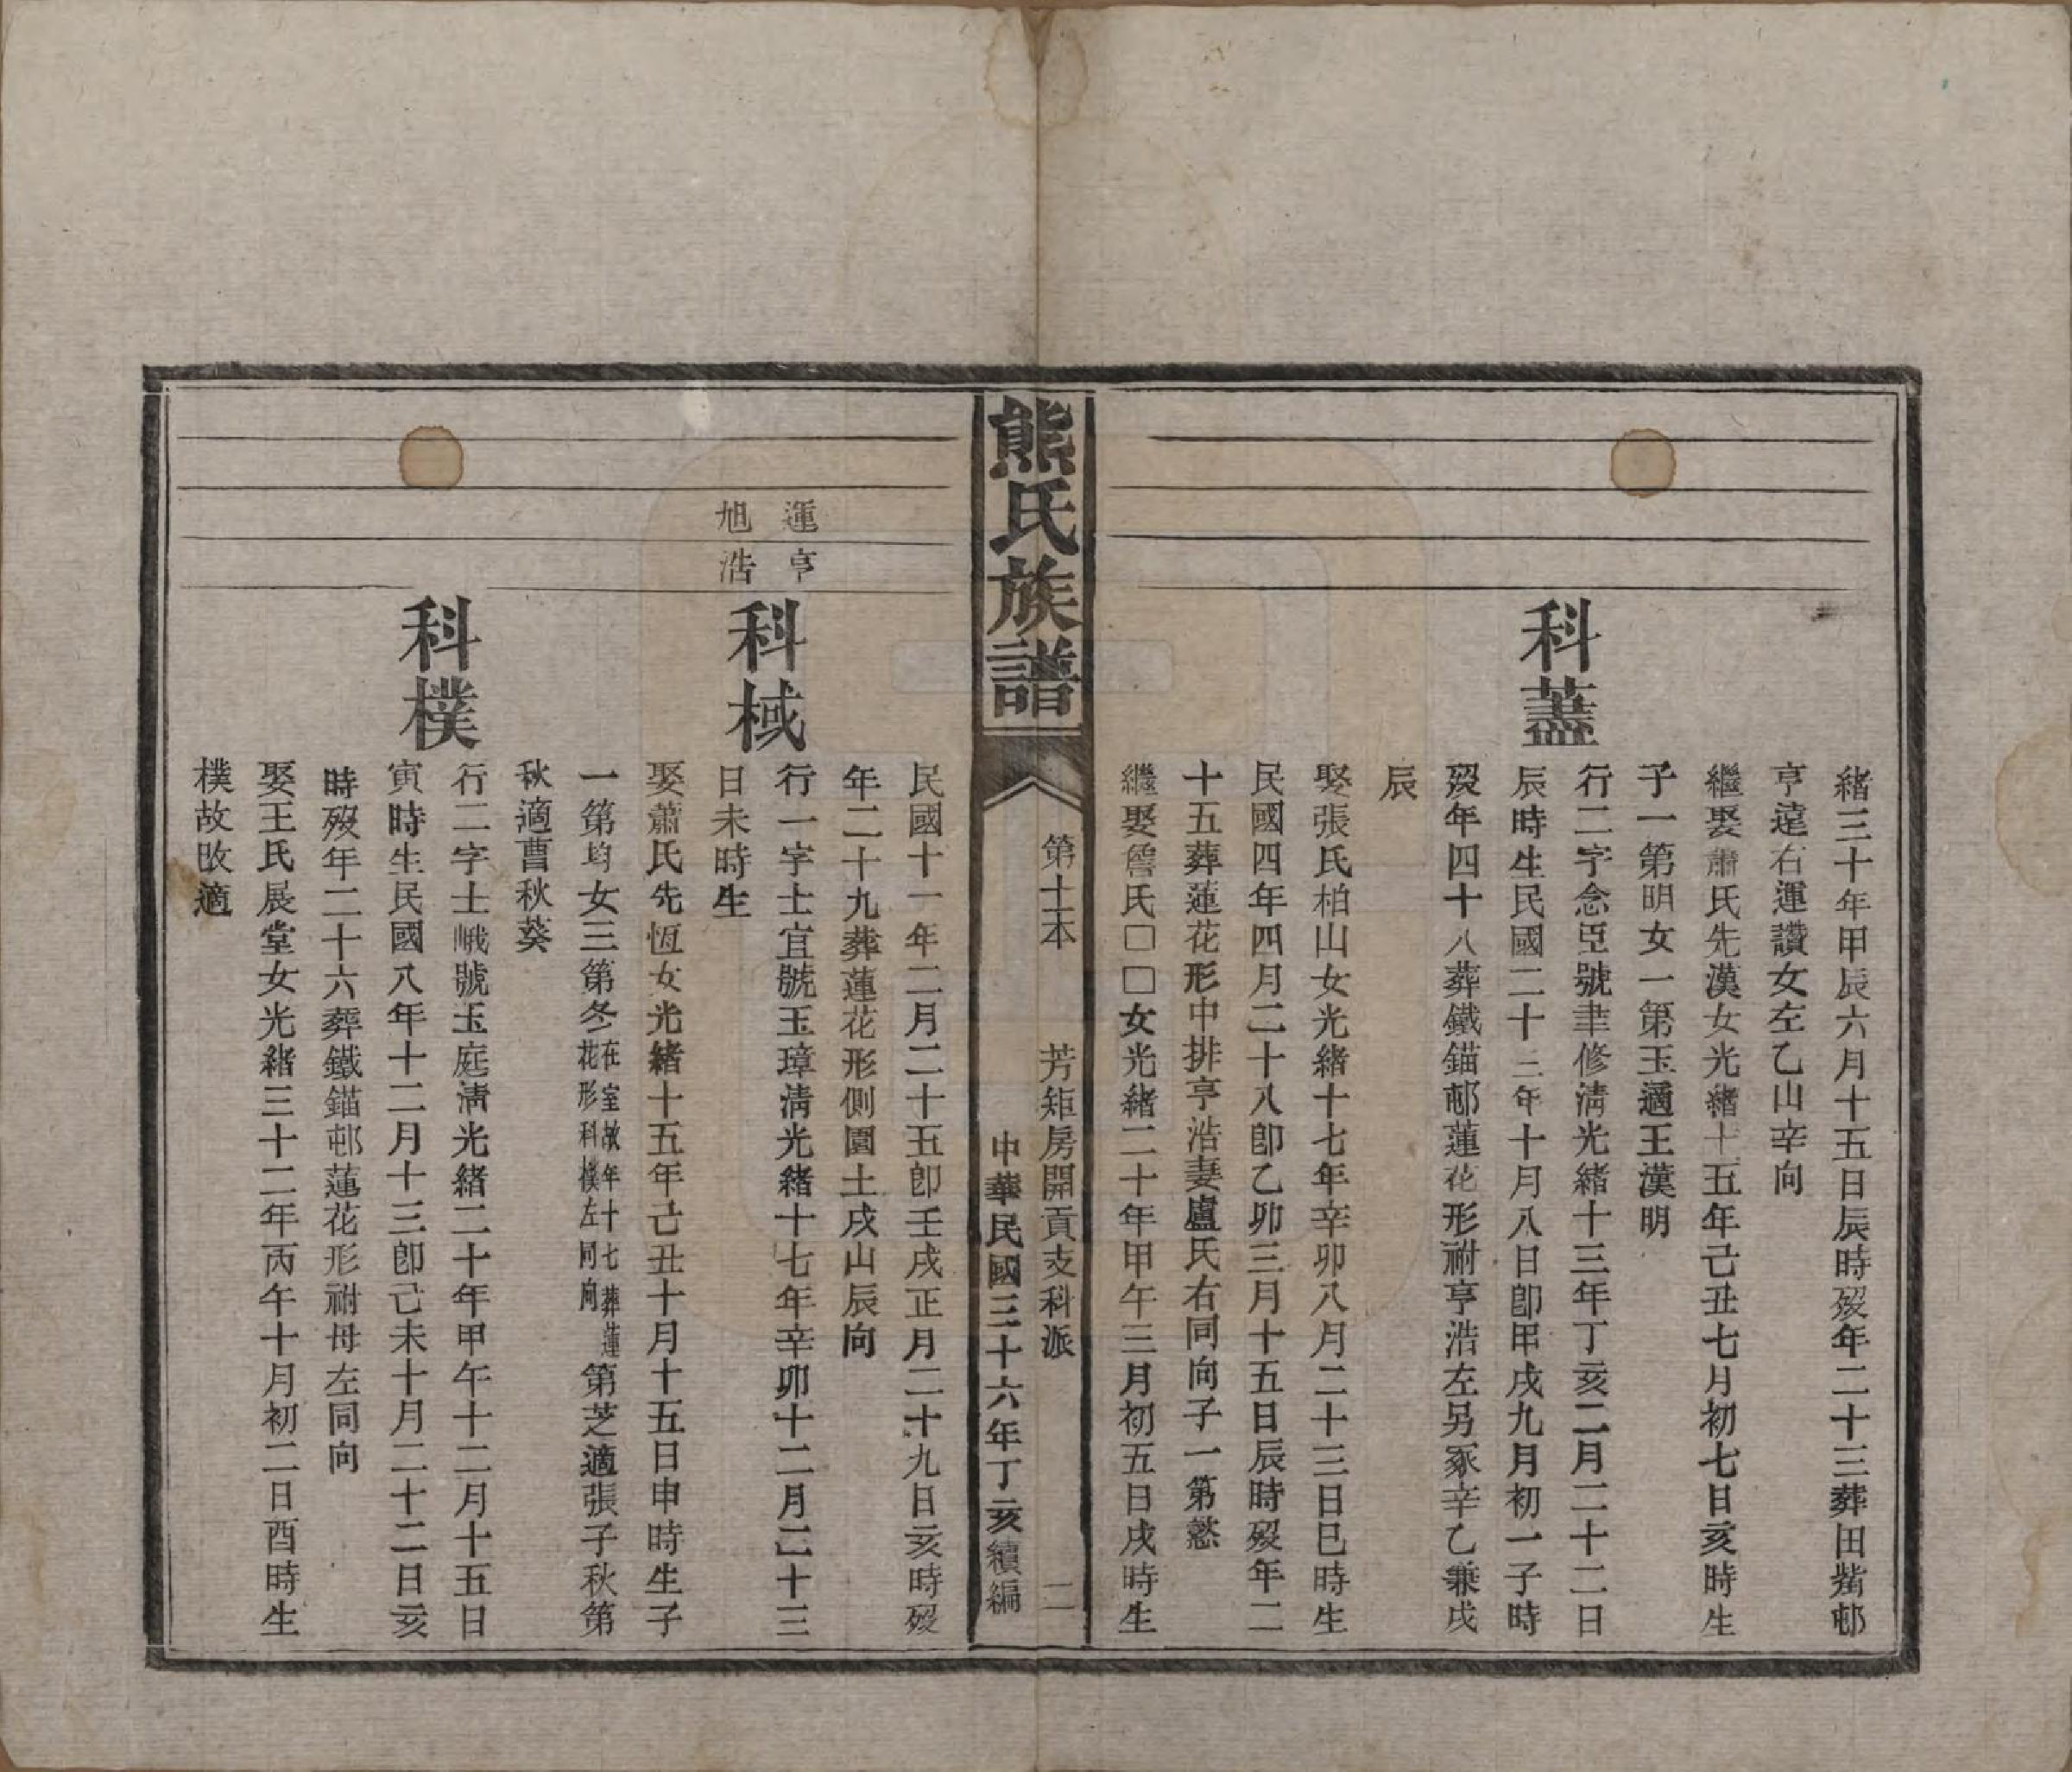 緒三十年甲辰六月十五日辰時歿年二十三葬田觜邨
亨遠右運讚女左乙山辛向
繼娶蕭氏先漢女光緒十五年己丑七月初七日亥時生
子一第明女一第玉適王漢明
科藎
行二字念臣號聿修淸光緒十三年丁亥二月二十二日
辰時生民國二十三年十月八日卽甲戌九月初一子時
歿年四十八葬鐵錨邨蓮花形祔亨浩左另冢辛乙兼戌
辰
娶張氏柏山女光緒十七年辛卯八月二十三日巳時生
民國四年四月二十八卽乙卯三月十五日辰時歿年二
十五葬蓮花形中排亨浩妻盧氏右同向子一第慾
繼娶詹氏□□女光緒二十年甲午三月初五日戌時生
熊氏族譜
第十二本
芳矩房開貢支科派
二
中華民國三十六年丁亥續編
民國十一年二月二十五卽壬戌正月二十九日亥時歿
年二十九葬蓮花形側園土戌山辰向
運亨
旭浩
科棫
行一字士宜號玉璋淸光緒十七年辛卯十二月二十三
日未時生
娶蕭氏先恆女光緒十五年己丑十月十五日申時生子
一第均女三第冬在室故年十七葬蓮花形科樸左同向第芝適張子秋第
秋適曹秋葵
科樸
行二字士峨號玉庭淸光緒二十年甲午十二月十五日
寅時生民國八年十二月十三卽己未十月二十二日亥
時歿年二十六葬鐵錨邨蓮花形祔母左同向
娶王氏展堂女光緒三十二年丙午十月初二日酉時生
樸故改適